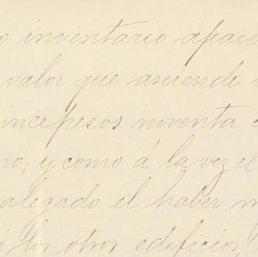 o inventario apare
valor que asciende
ince pesos noventa c
no, y como á la vez el
alegado el haber m
i los otros edificios,